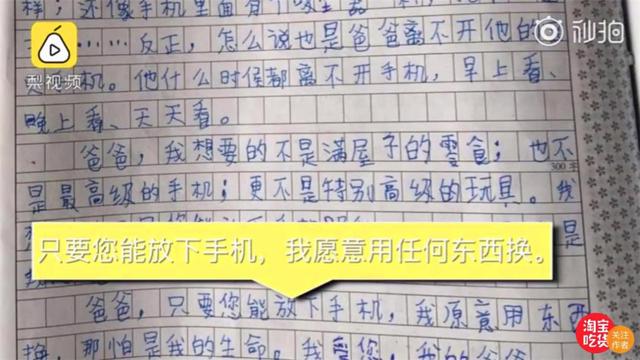 样；还像手机里面有个
秒拍
……反正，怎么说也是爸爸离不开他的
梨视频
机。他什么时候都离不开手机，早上看、
晚上看、天天看。
爸爸，我想要的不是满屋子的零食；也不
300字
是最高级的手机；更不是特别高级的玩具。我
是
只要您能放下手机，我愿意用任何东西换。
爸爸，只要您能放下手机，我原意用东西
换，那怕是我的生命。我爱您，我的
淘宝吃货
关注作者